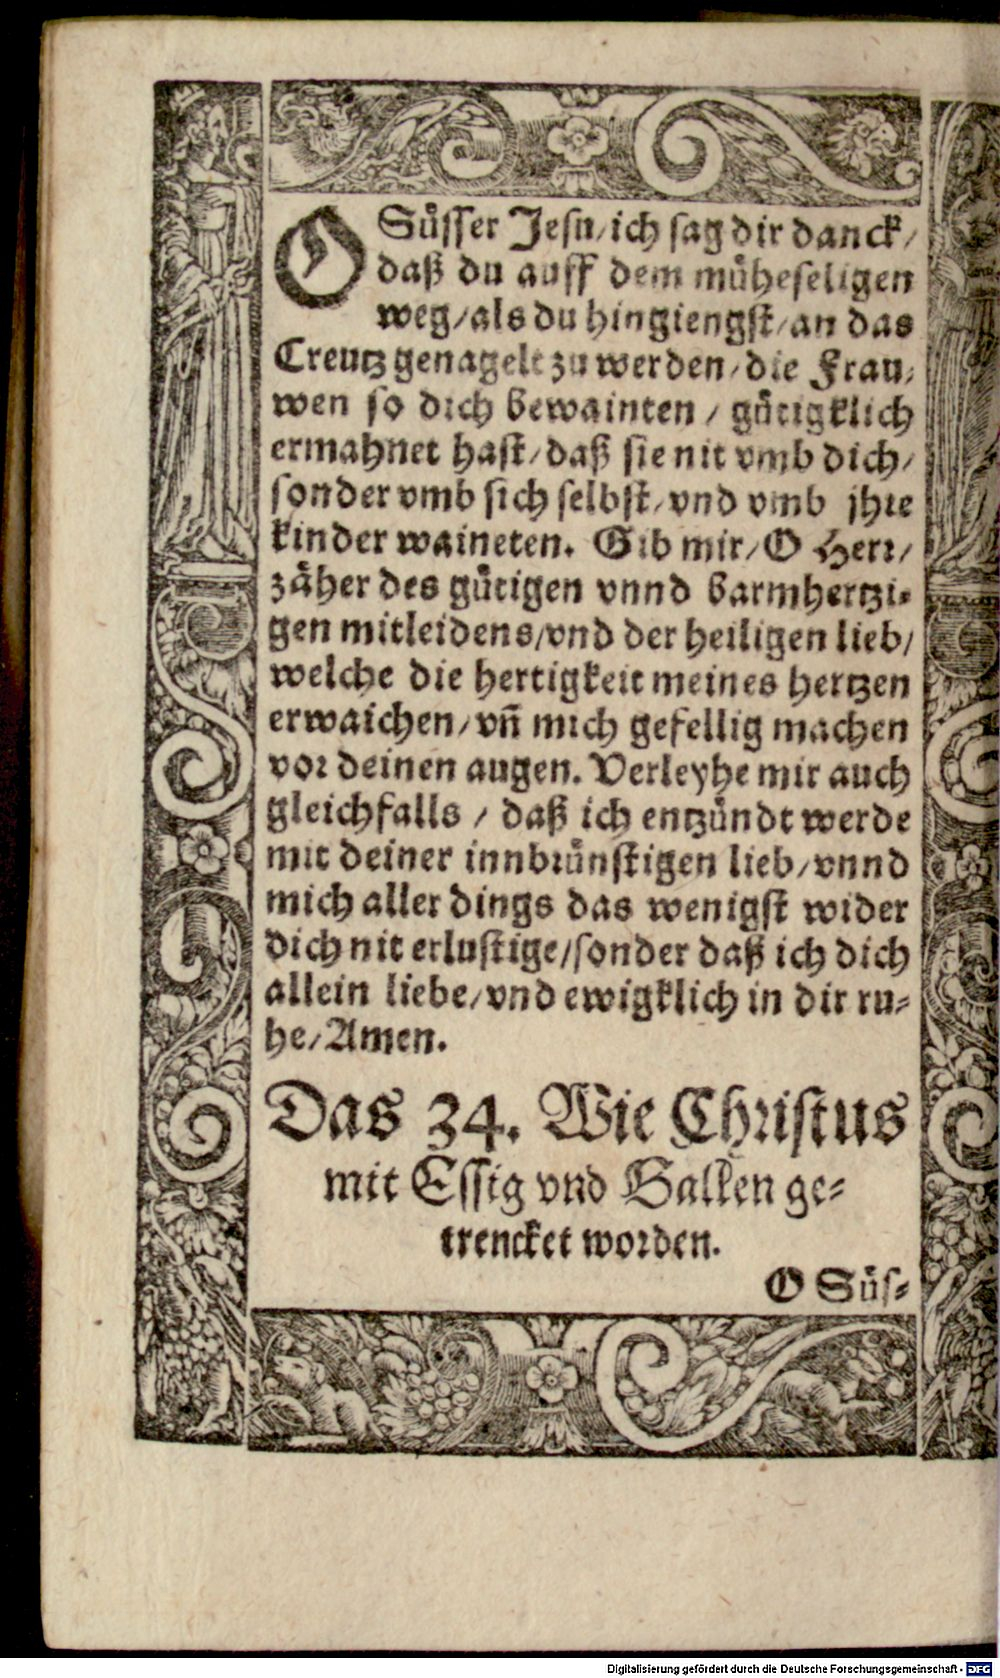 O Süsser Jesu/ ich sag dir danck/
daß du auff dem müheseligen
weg/ als du hingiengst/ an das
Creutz genagelt zu werden/ die Frau-
wen so dich bewainten / gütigklich
ermahnet hast/ daß sie nit vmb dich/
sonder vmb sich selbst/ vnd vmb jhre
kinder waineten. Gib mir/ O Herr/
zäher des gütigen vnnd barmhertzi-
gen mitleidens/ vnd der heiligen lieb/
welche die hertigkeit meines hertzen
erwaichen/ vñ mich gefellig machen
vor deinen augen. Verleyhe mir auch
gleichfalls / daß ich entzündt werde
mit deiner innbrünstigen lieb/ vnnd
mich aller dings das wenigst wider
dich nit erlustige/ sonder daß ich dich
allein liebe/ vnd ewigklich in dir ru-
he/ Amen.
Das 34. Wie Christus
mit Essig vnd Gallen ge-
trencket worden.
O Süs-
Digitalisierung gefördert durch die Deutsche Forschungsgemeinschaft - DFG